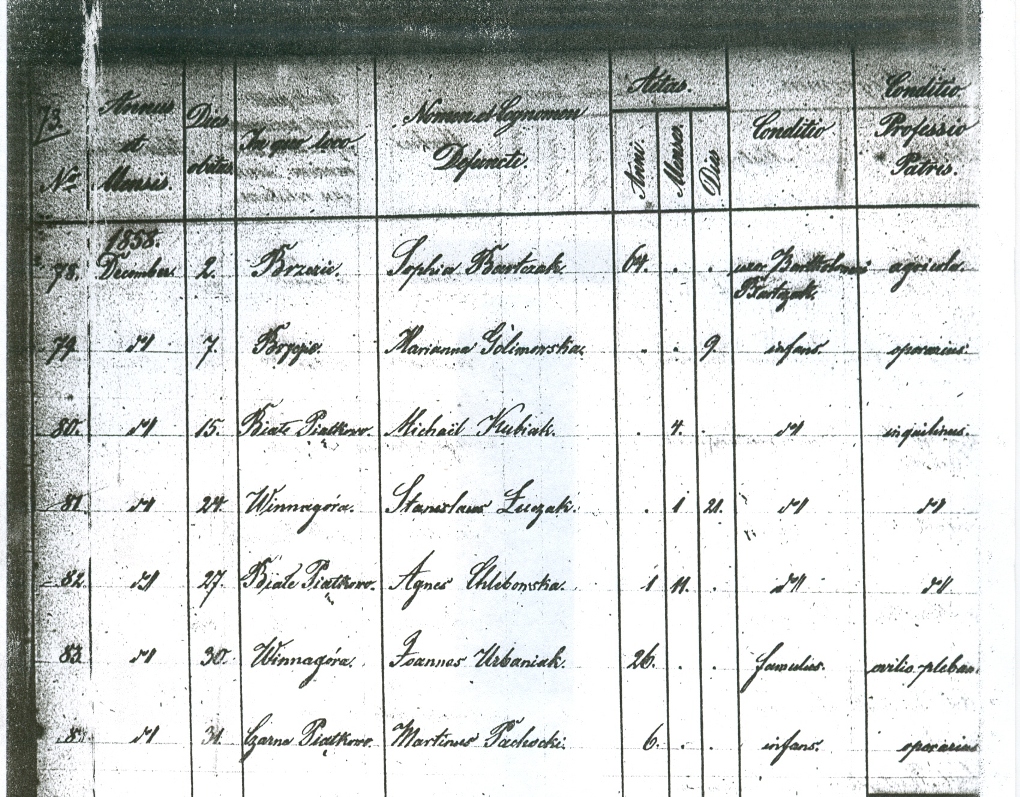 73.
Annus et Mensis.
Dies obitus
In quo loco
Nomen et Cognomen Defuncti.
Aetas.
Anni. Menses. Dies
Conditio
Conditio Professio Patris.
No
1858.
78. December 2. Brzezie. Sophia Bartczak. 64. . . uxor Bartholomei agricola.
Bartczak.
79. dº 7. Marianna Gólimowska. . . 9. infans. operarius.
80. dº 15. Białe Piątkowo. Michael Kubiak. . 4. . dº inquilinus.
81 dº 24. Winnagóra. Stanislaus Łuczak. . 1 21. dº dº
82. dº 27. Białe Piątkowo. Agnes Chlebowska. 1 11. . dº dº
83. dº 30. Winnagóra. Joannes Urbaniak. 26. . . famulus.
8 dº 31. Czarne Piątkowo. Martinus Pachocki. 6. . . infans. operarius